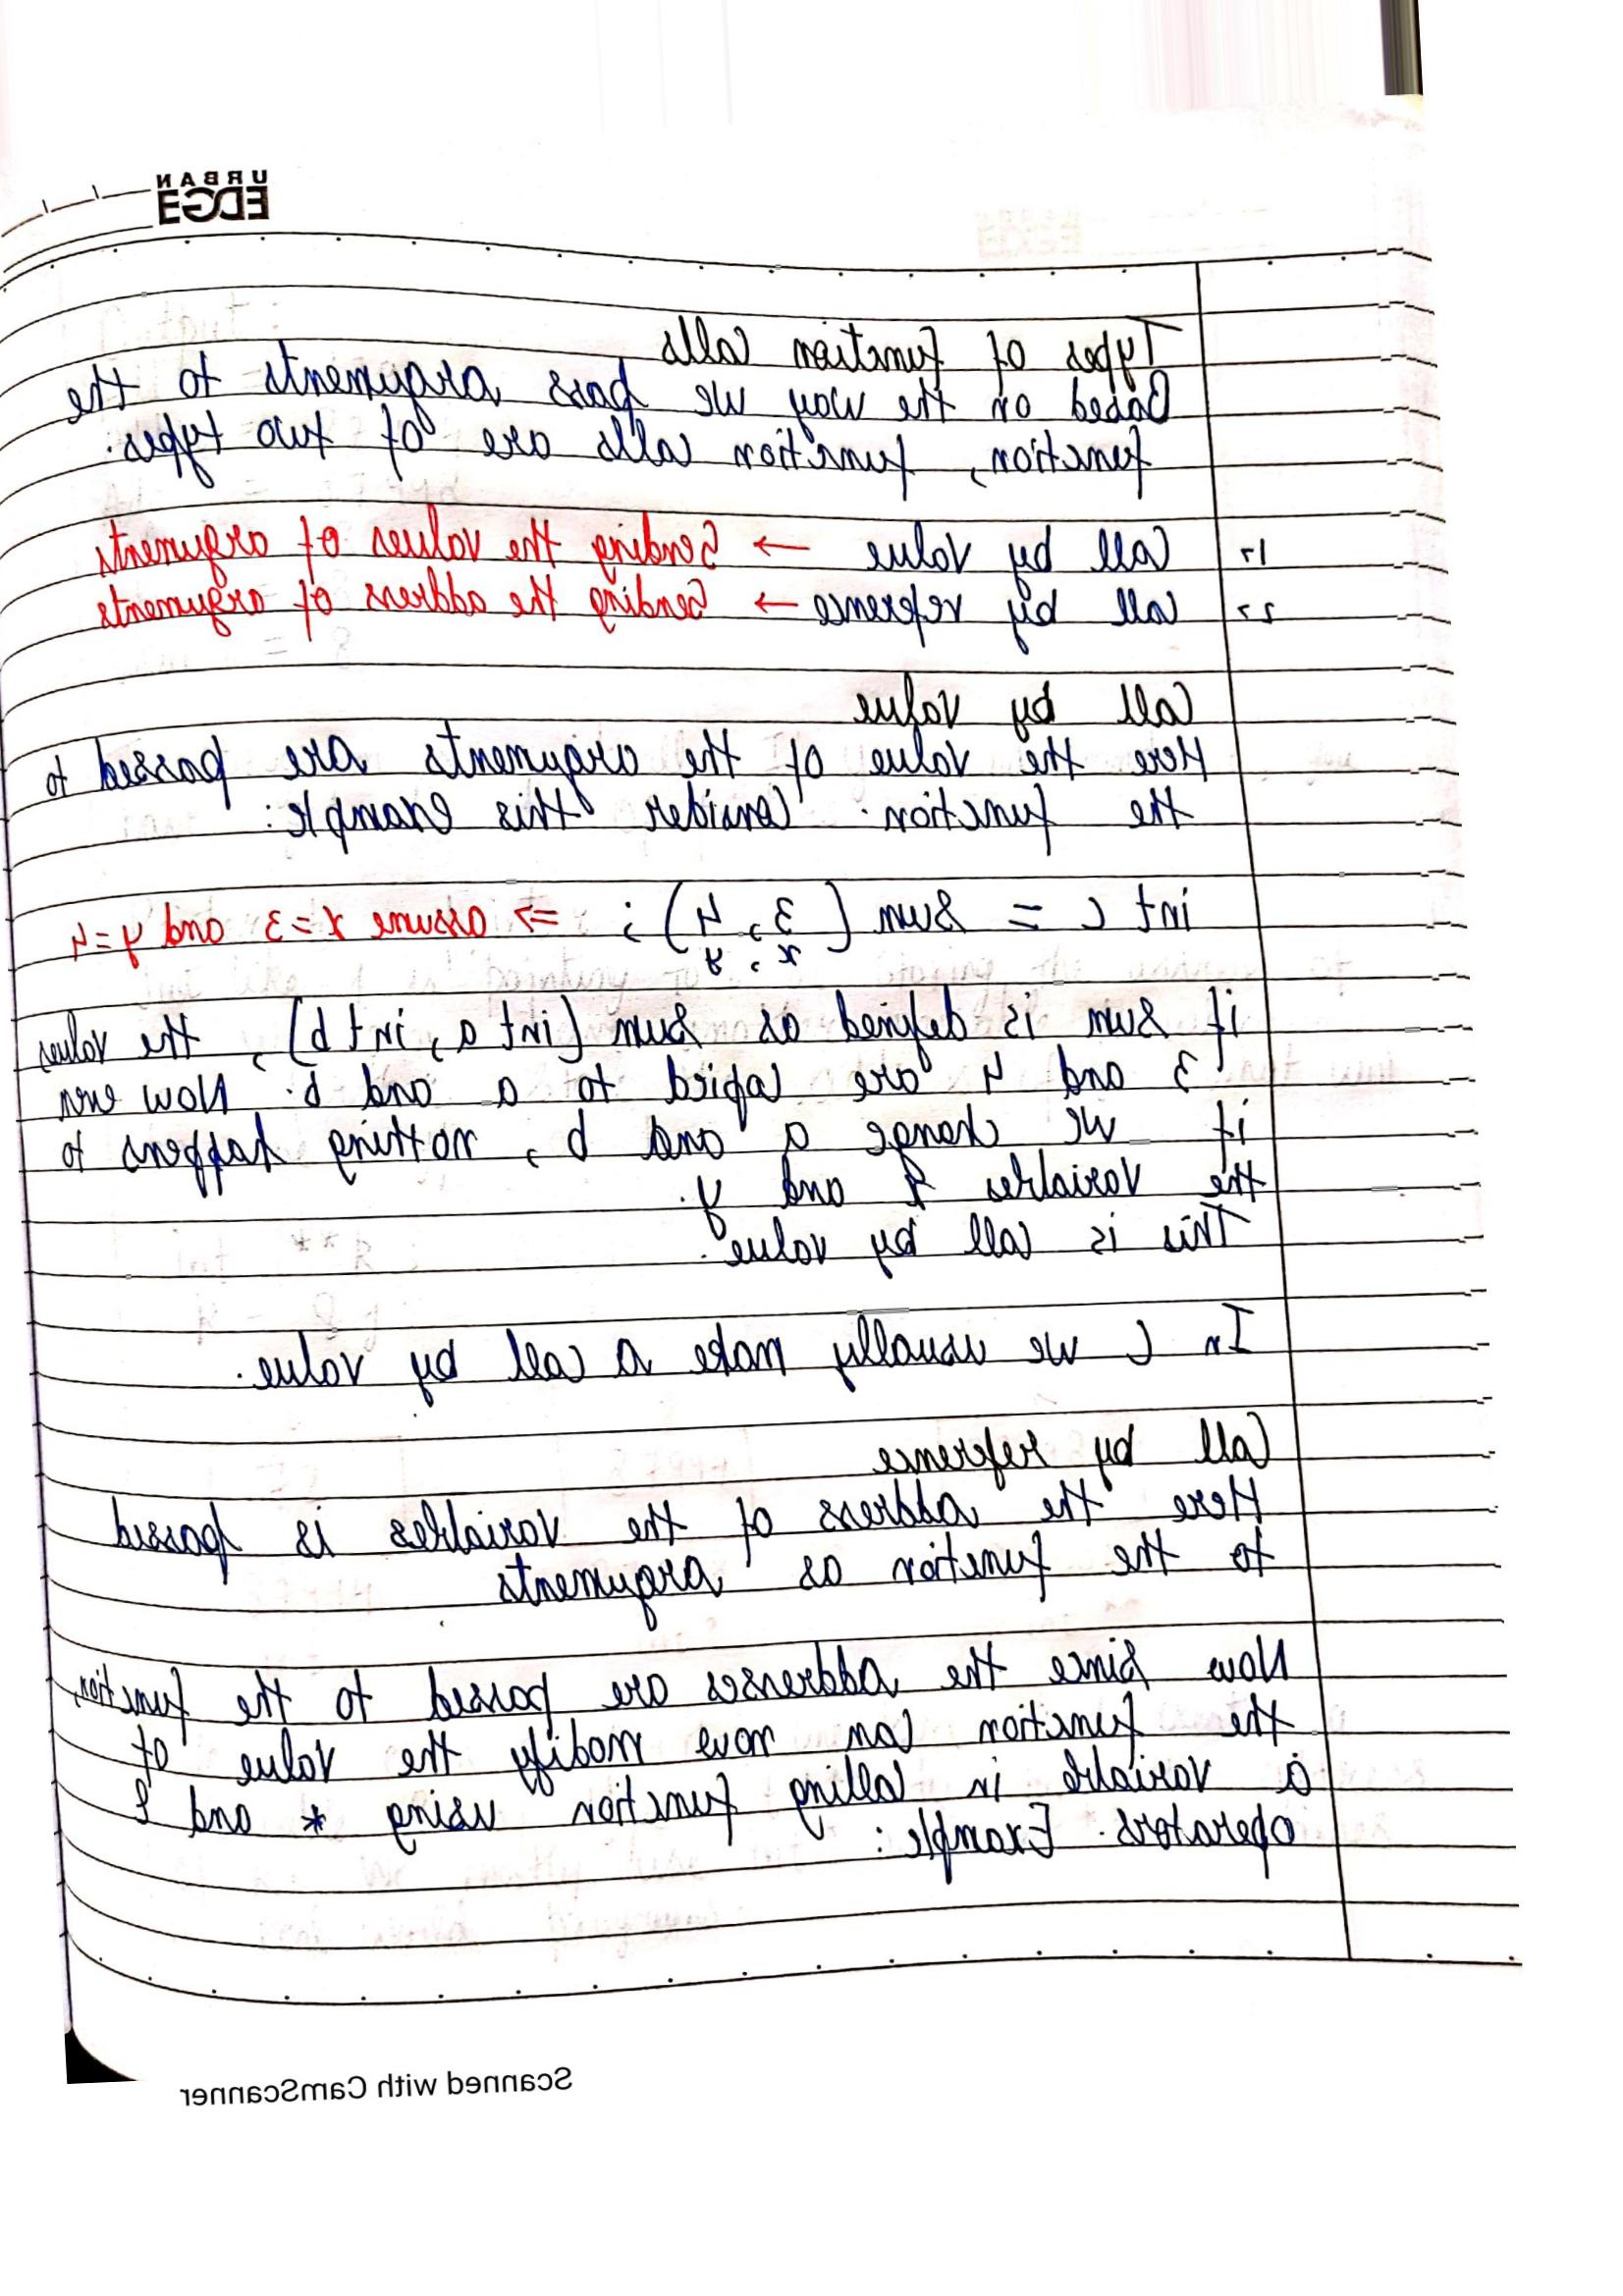 URBAN
EDGE
Types of function calls
Based on the way we pass arguments to the
function, function calls are of two types.
1> Call by value → Sending the values of arguments
2> Call by reference → Sending the address of arguments
Call by value
Here the value of the arguments are passed to
the function. Consider this example:
int c = sum (3, 4); => assume x=3 and y=4
x, y
if sum is defined as sum (int a, int b), the values
3 and 4 are copied to a and b. Now even
if we change a and b, nothing happens to
the variables x and y.
This is call by value.
In C we usually make a call by value.
Call by reference
Here the address of the variables is passed
to the function as arguments
Now since the addresses are passed to the function,
the function can now modify the value of
a variable in calling function using * and &
operators. Example:
Scanned with CamScanner